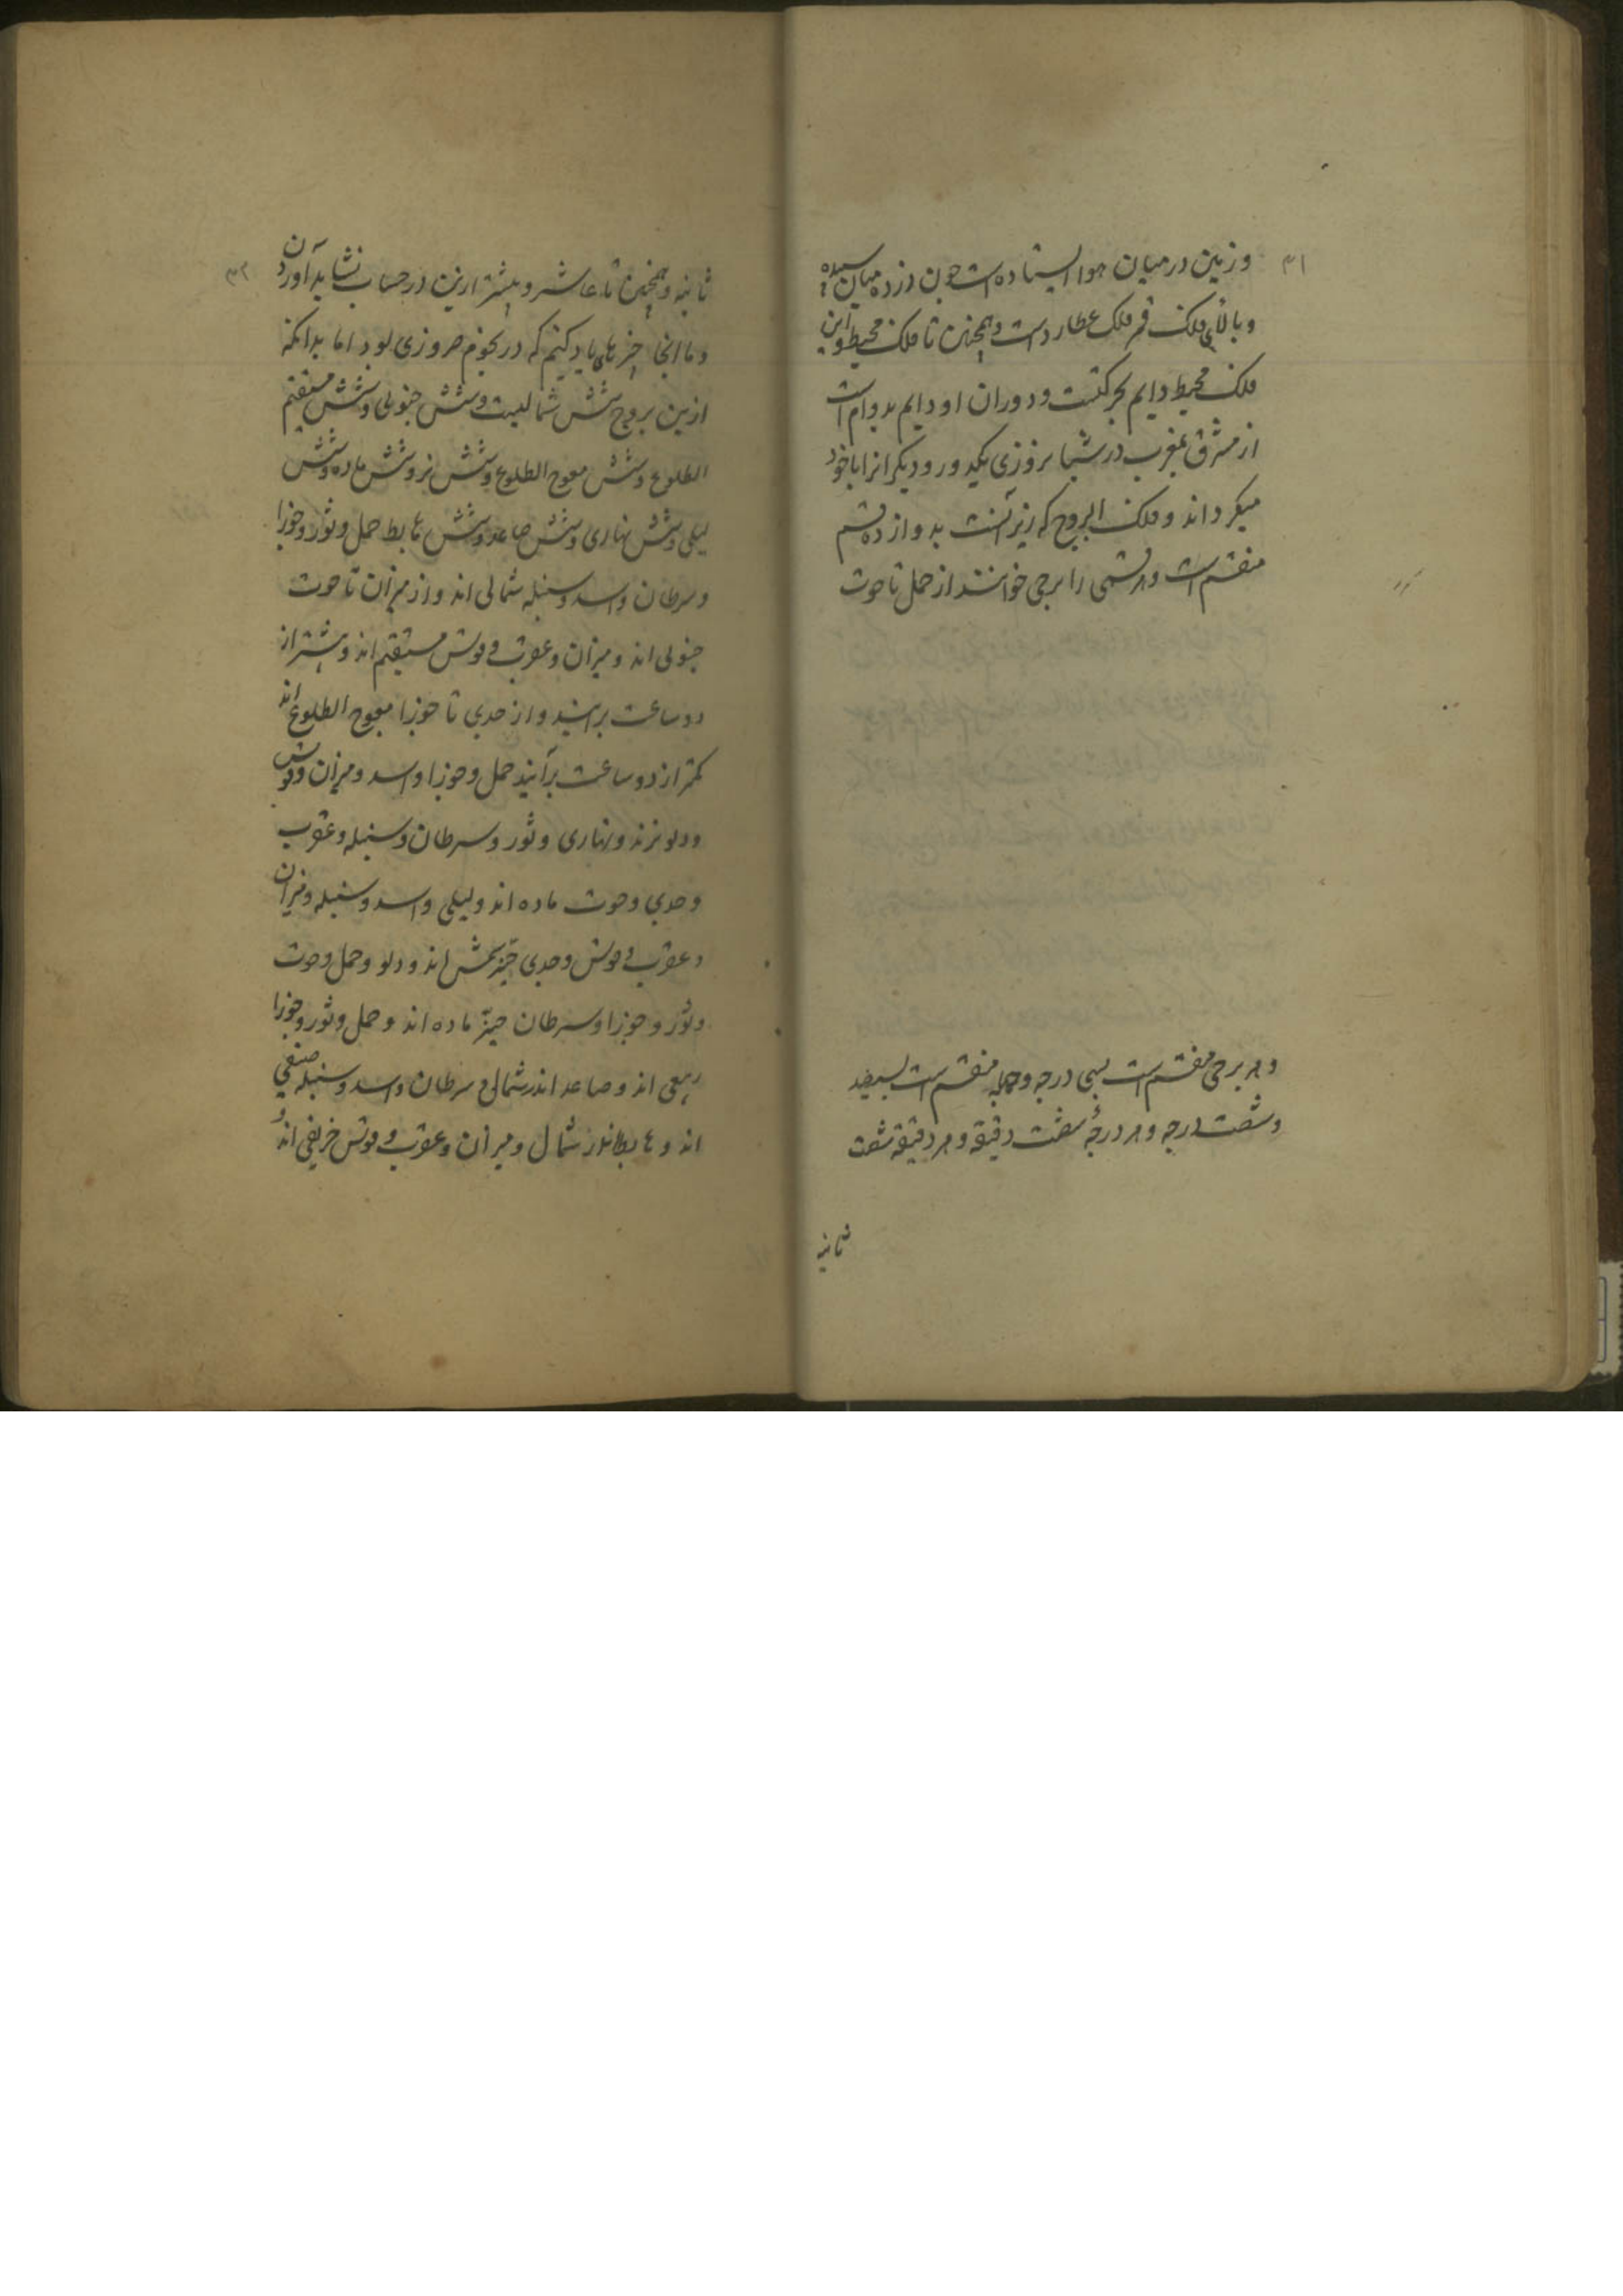 ۳۱
وزمین در میان هوا ایستاده است چون زرده میان سپیده
و بالای فلک قمر فلک عطاردست و همچنین تا فلک محیط و این
فلک محیط دایم بحرکتست و دوران او دایم بدوام است
از مشرق بمغرب در شبانروزی یکدور و دیگرانرا با خود
میگرداند و فلک البروج که زیر آنست بدوازده قسم
منقسم است و هر قسمی را برجی خوانند از حمل تا حوت
و هر برجی منقسم است بسی درجه و جمله منقسم است بسیصد
و شصت درجه و هر درجهٔ شصت دقیقه و هر دقیقهٔ شصت
ثانیه
۳۲
ثانیه و همچنین تا عاشر و بیشتر ازین در حساب نشاید آوردن
و ما اینجا چیزهایی یاد کنیم که در نجوم ضروری بود اما بدانکه
ازین بروج شش شمالیست و شش جنوبی و شش مستقیم
الطلوع و شش معوج الطلوع و شش نر و شش ماده و شش
لیلی و شش نهاری و شش صاعد و شش هابط حمل و ثور و جوزا
و سرطان و اسد و سنبله شمالی اند و از میزان تا حوت
جنوبی اند و میزان و عقرب و قوس مستقیم اند و بیشتر از
دو ساعت برآیند و از جدی تا جوزا معوج الطلوع اند
کمتر از دو ساعت برآیند حمل و جوزا و اسد و میزان و قوس
و دلو نرند و نهاری و ثور و سرطان و سنبله و عقرب
و جدی و حوت ماده اند و لیلی و اسد و سنبله و میزان
و عقرب و قوس و جدی حیز شمس اند و دلو و حمل و حوت
و ثور و جوزا و سرطان حیز ماده اند و حمل و ثور و جوزا
ربیعی اند و صاعد اندر شمالی و سرطان و اسد و سنبله صیفی
اند و هابط اندر شمال و میزان و عقرب و قوس خریفی اند و